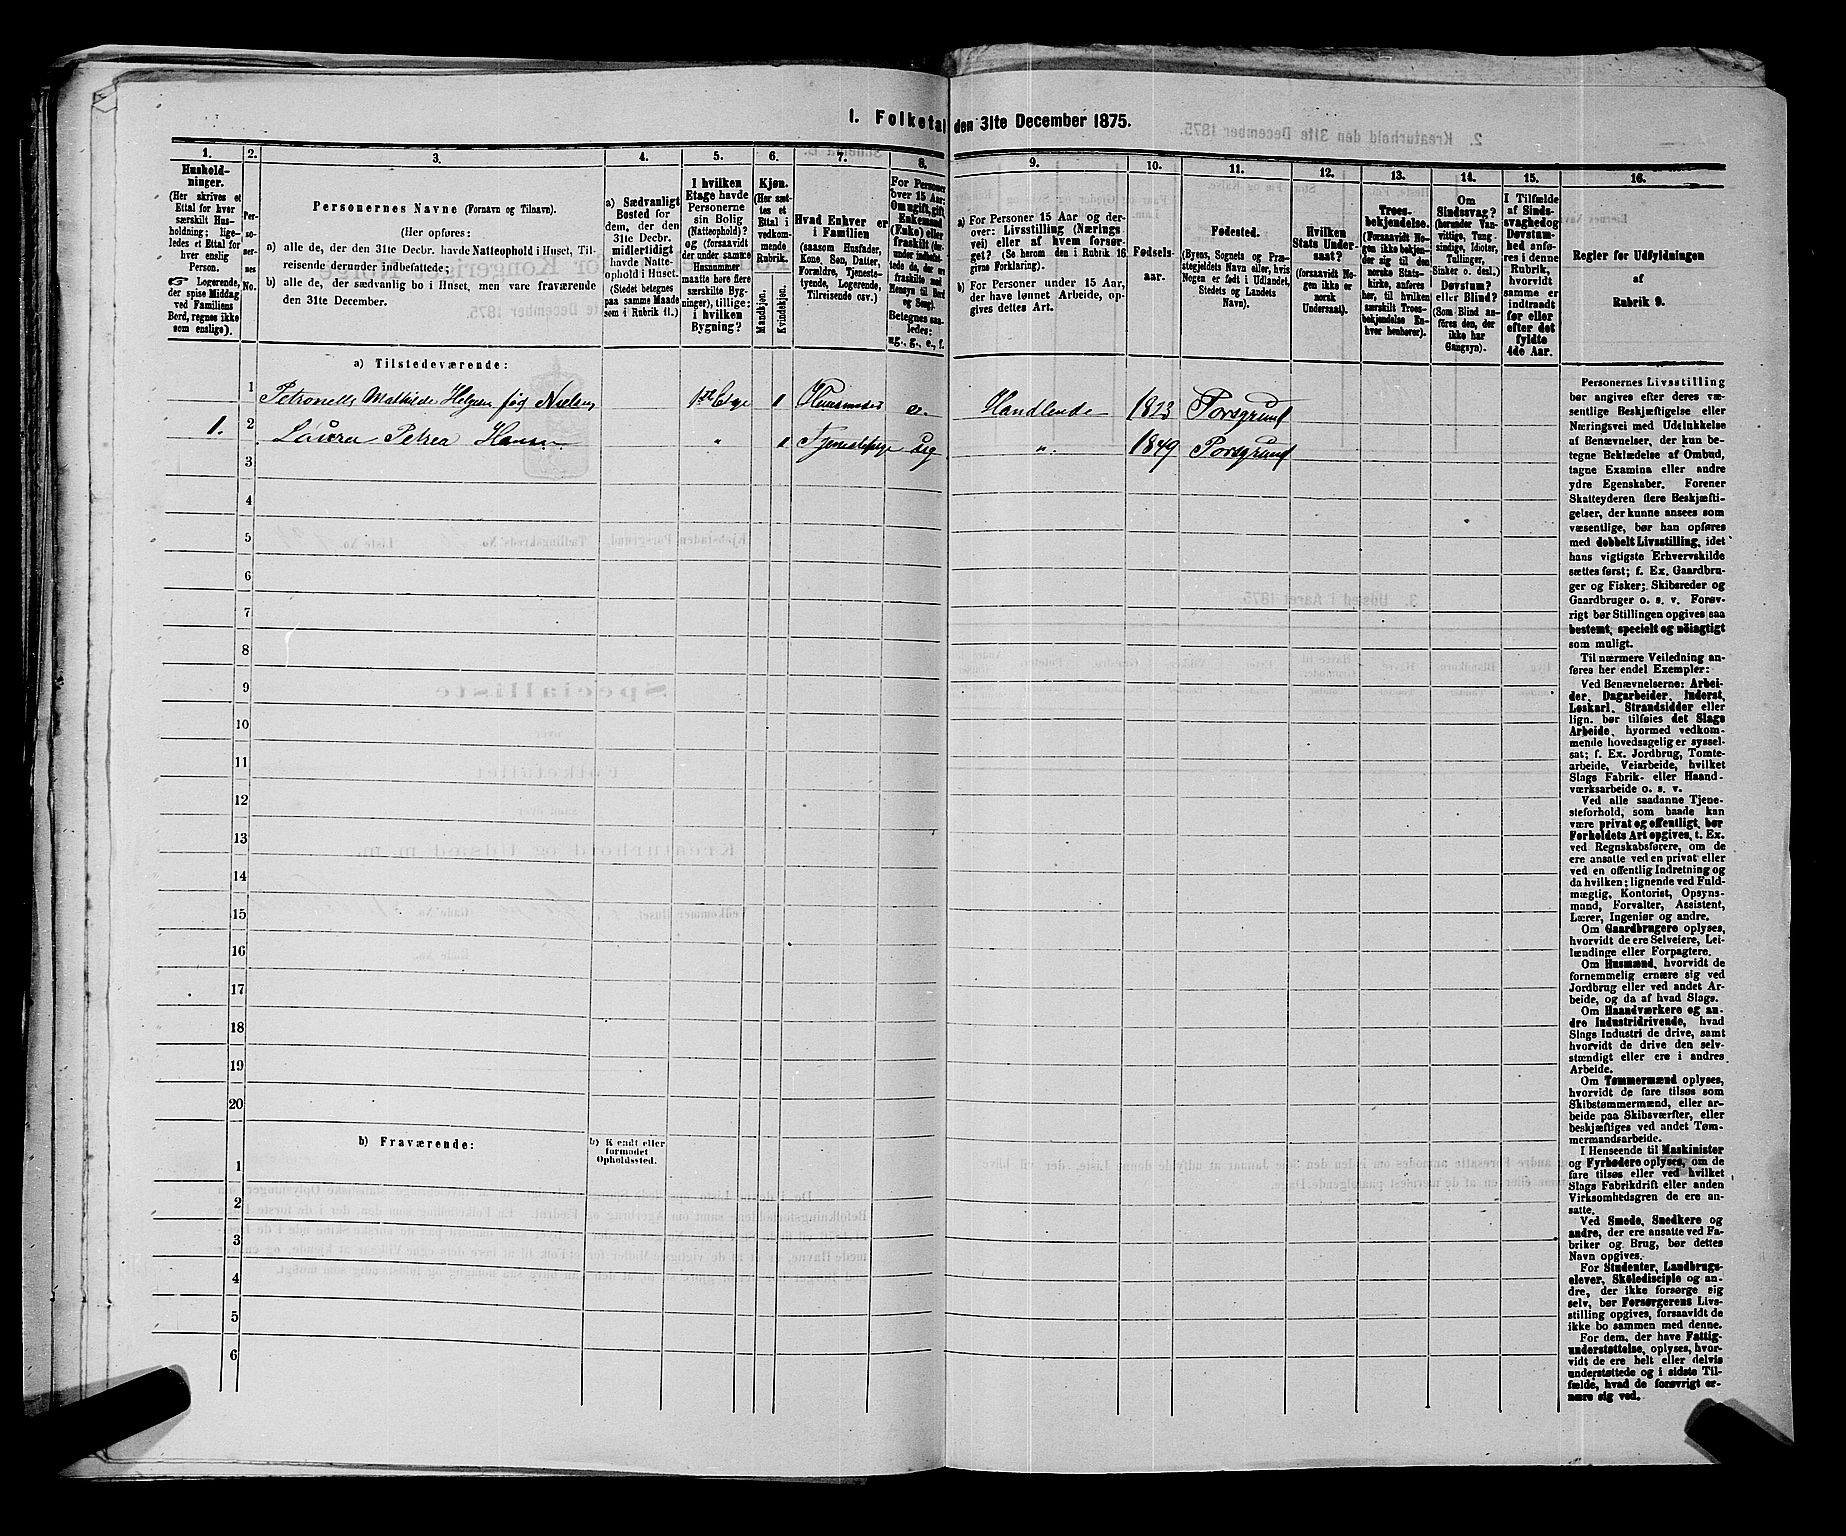 1. Folketal den 31te December 1875.
1.
Hushold-
ninger.
(Her skrives et
Ettal for hver
særskilt Hus-
holdning; lige-
ledes et Ettal for
hver enslig
Person.
☞ Logerende,
der spise Middag
ved Familiens
Bord, regnes ikke
som enslige).
2.
Per-
so-
ner-
nes
No.
3.
Personernes Navne (Fornavn og Tilnavn).
(Her opføres:
a) alle de, der den 31te Decbr. havde Natteophold i Huset, Til-
reisende derunder indbefattede;
b) alle de, der sædvanlig bo i Huset, men vare fraværende
den 31te December.
4.
a) Sædvanligt
Bosted for
dem, der den
31te Decbr.
midlertidigt
havde Natte-
ophold i Huset.
(Stedet betegnes
paa samme Maade
som i Rubrik 11.)
5.
I hvilken
Etage havde
Personerne
sin Bolig
(Natteophold)?
og (forsaavidt
der under samme
Husnummer
maatte høre flere
særskilte Byg-
ninger), tillige:
i hvilken
Bygning?
6.
Kjøn.
(Her sæt-
tes et
Ettal i
vedkom-
mende
Rubrik.
Mandkjøn.
Kvindekjøn.
7.
Hvad Enhver er
i Familien
(saasom Husfader,
Kone, Søn, Datter,
Forældre, Tjeneste-
tyende, Logerende,
Tilreisende osv.)
8.
For Personer
over 15 Aar:
Om ugift, gift,
Enkemand
(Enke) eller
fraskilt
Betegnes saa-
ledes:
ug., g., e., f.
9.
a) For Personer 15 Aar og der-
over: Livsstilling (Nærings
vei) eller af hvem forsør-
get? (Se herom den i Rubrik 16
givne Forklaring).
b) For Personer under 15 Aar,
der have lønnet Arbeide, op-
gives dettes Art.
10.
Fødsels-
aar.
11.
Fødested.
(Byens, Sognets og Præ-
stegjeldets Navn eller, hvis
Nogen er født i Udlandet,
Stedets og Landets
Navn).
12.
Hvilken
Stats Under-
saat?
(forsaavidt No-
gen ikke er
norsk
Undersaat).
13.
Troes-
bekjendelse.
(Forsaavidt No-
gen ikke bekjen-
der sig til den
norske Stats-
kirke, anføres
her, til hvilken
særskilt Troes-
bekjendelse En-
hver henhører).
14.
Om
Sindssvag?
(herunder Van-
vittige, Tung-
sindige, Idioter,
Tullinger,
Sinker o. desl.)
Døvstum?
eller Blind?
(Som Blind an-
føres den, der
ikke har
Gangsyn).
15.
I Tilfælde
af Sinds-
svaghed og
Døvstum-
hed anfø-
res i denne
Rubrik,
hvorvidt
samme er
indtraadt
før eller
efter det
fyldte
4de Aar.
16.
Regler for Udfyldningen
af
Rubrik 9.
a) Tilstedeværende:
1 Petronelle Mathilde Helgesen føg Nielsen 1ste Etage 1 Huusmoder e. Handlende 1823 Porsgrund
1. 2 Laura Petrea Hansen " 1 Tjenestepige ug " 1849 Porsgrund
3
4
5
6
7
8
9
10
11
12
13
14
15
16
17
18
19
20
b) Fraværende:
b) Kjendt eller
formodet
Opholdssted.
1
2
3
4
5
6
Personernes Livsstilling
bør angives efter deres væ-
sentlige Beskjæftigelse eller
Næringsvei med Udelukkelse
af Benævnelser, der kun be-
tegne Beklædelse af Ombud,
tagne Examina eller andre
ydre Egenskaber. Forener
Skatteyderen flere Beskjæfti-
gelser, der kunne ansees som
væsentlige, bør han opføres
med dobbelt Livsstilling, idet
hans vigtigste Erhvervskilde
sættes først; f. Ex. Gaardbru-
ger og Fisker; Skibsreder og
Gaardbruger o. s. v. Forøv-
rigt bør Stillingen opgives saa
bestemt, specielt og nøiagtigt
som muligt.
Til nærmere Veiledning an-
føres her endel Exempler:
Ved Benævnelserne: Arbei-
der, Dagarbeider, Inderst,
Løskarl, Strandsidder eller
lign. bør tilføies det Slags
Arbeide, hvormed vedkom-
mende hovedsagelig er syssel-
sat; f. Ex. Jordbrug, Tomte-
arbeide, Veiarbeide, hvilket
Slags Fabrik- eller Haand-
værksarbeide o. s. v.
Ved alle saadanne Tjene-
steforhold, som baade kan
være privat og offentligt, bør
Forholdets Art opgives, t. Ex.
ved Regnskabsførere, om de
ere ansatte ved en privat eller
ved en offentlig Indretning og
da hvilken; lignende ved Fuld-
mægtig, Kontorist, Opsyns-
mand, Forvalter, Assistent,
Lærer, Ingeniør og andre.
Om Gaardbrugere oplyses,
hvorvidt de ere Selveiere, Lei-
lændinge eller Forpagtere.
Om Husmænd, hvorvidt de
fornemmelig ernære sig ved
Jordbrug eller ved andet Ar-
beide, og da af hvad Slags.
Om Haandværkere og an-
dre Industridrivende, hvad
Slags Industri de drive, samt
hvorvidt de drive den selv-
stændigt eller ere i andres
Arbeide.
Om Tømmermænd oplyses,
hvorvidt de fare tilsøs som
Skibstømmermænd, eller ar-
beide paa Skibsværfter, eller
beskjæftiges ved andet Tøm-
mermandsarbeide.
I Henseende til Maskinister
og Fyrbødere oplyses, om de
fare tilsøs eller ved hvilket
Slags Fabrikdrift eller anden
Virksomhedsgren de ere an-
satte.
Ved Smede, Snedkere og
andre, der ere ansatte ved Fa-
briker og Brug, bør dettes
Navn opgives.
For Studenter, Landbrugs-
elever, Skoledisciple og an-
dre, der ikke forsørge sig
selv, bør Forsørgerens Livs-
stilling opgives, forsaavidt de
ikke bo sammen med denne.
For dem, der have Fattig-
understøttelse, oplyses, hvor-
vidt de ere helt eller delvis
understøttede og i sidste Til-
fælde, hvad de forøvrigt er-
nære sig ved.